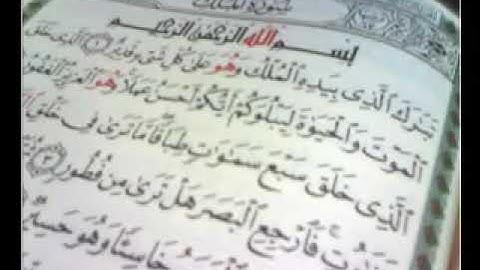 سُورَةُ الْمُلْكِ
بِسْمِ اللهِ الرَّحْمٰنِ الرَّحِيمِ
تَبٰرَكَ الَّذِى بِيَدِهِ الْمُلْكُ وَهُوَ عَلٰى كُلِّ شَىْءٍ قَدِيرٌ ١ الَّذِى خَلَقَ
الْمَوْتَ وَالْحَيٰوةَ لِيَبْلُوَكُمْ اَيُّكُمْ اَحْسَنُ عَمَلًا وَهُوَ الْعَزِيزُ الْغَفُورُ
الَّذِى خَلَقَ سَبْعَ سَمٰوٰتٍ طِبَاقًا مَا تَرٰى فِى خَلْقِ
فَارْجِعِ الْبَصَرَ هَلْ تَرٰى مِنْ فُطُورٍ ٣
خَاسِئًا وَهُوَ حَسِيرٌ